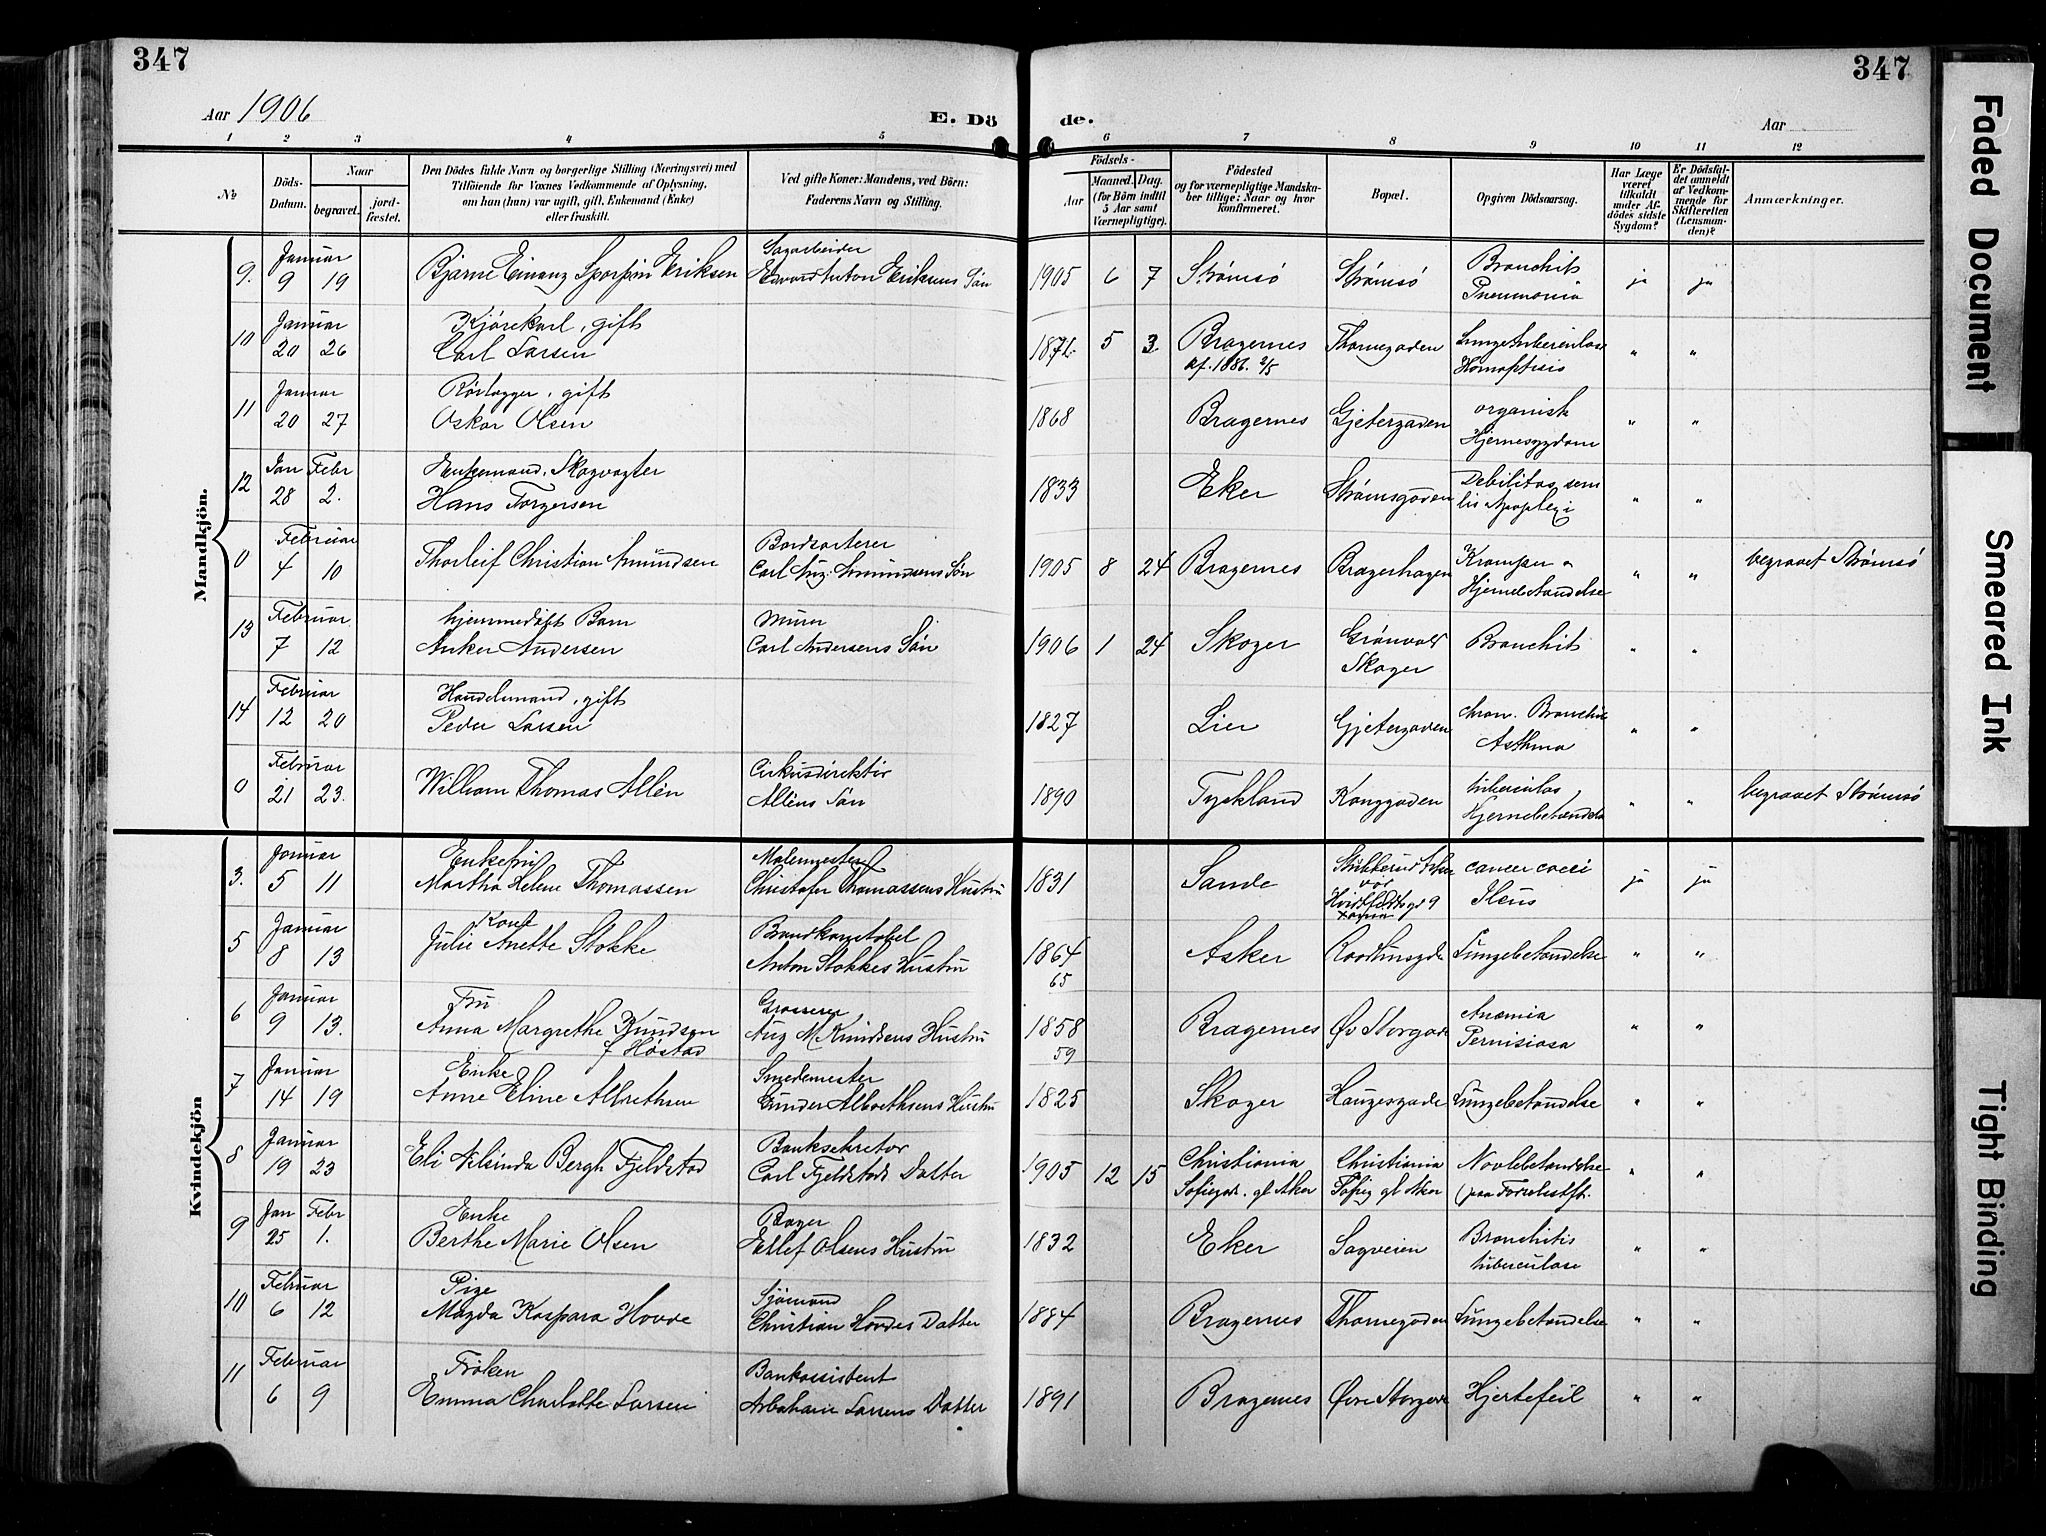 347
347
Aar 1906
E. Dö de.
Aar
1 2 3 4 5 6 7 8 9 10 11 12
No
Döds-Datum.
Naar
begravet.
jord-fæstet.
Den Dödes fulde Navn og borgerlige Stilling (Næringsvei) med
Tilföiende for Voxnes Vedkommende af Oplysning,
om han (hun) var ugift, gift, Enkemand (Enke)
eller fraskilt.
Ved gifte Koner: Mandens, ved Börn:
Faderens Navn og Stilling.
Födsels-
Aar
Maaned. Dag.
(for Börn indtil
5 Aar samt
Værnepligtige).
Födested
og for værnepligtige Mandska-
ber tillige: Naar og hvor
konfirmeret.
Bopæl.
Opgiven Dödsaarsag.
Har Læge
været
tilkaldt
under Af-
dödes sidste
Sygdom?
Er Dödsfal-
det anmeldt
af Vedkom-
mende for
Skifteretten
(Lensman-
den)?
Anmærkninger.
Mandkjön.
9. Januar 9 19 Bjarne Einang Eriksen Sagarbeider Edvard Anton Eriksens Søn 1905 6 7 Strømsö Strømsö Bronchit Pneumonia ja ja
10 Januar 20 26 Kjørekarl, gift Carl Larsen 1871 5 3 Bragernes kf. 1886 2/5 Thornegaden Lungetuberculose Hæmoptisis " "
11 Januar 20 27 Rørlægger, gift Oskar Olsen 1868 Bragernes Gjetergaden organisk Hjernesygdom " "
12 Jan 28 Febr 2. Enkemand, Skogvogter Hans Torgersen 1833 Eker Strømsgaden Debilitas senilis Apoplexi " "
0 Februar 4 10 Thorleif Christian Amundsen Bordsorterer Carl Aug: Amundsens Søn 1905 8 24 Bragernes Bragerhagen Kramper Hjernebetændelse " " begravet Strømsø
13 Februar 7 12 hjemmedøbt Barn Anker Andersen Murer Carl Andersens Søn 1906 1 24 Skoger Grønvold Skoger Bronchit " "
14 Februar 12 20 Handelsmand, gift Peder Larsen 1827 Lier Gjetergaden chron. Bronchit Asthma " "
0 Februar 21 23. William Thomas Allén Cirkusdirektör Alléns Søn 1890 Tyskland Konggaden tuberculos Hjernebetændelse " " begravet Strømsø
Kvindekjön
3. Januar 5 11 Enkefru Martha Helene Thomassen Malermester Christofer Thomassens Hustru 1831 Sande cancer coeci Ileus ja ja
5 Januar 8 13 Kone Julie Anette Stokke Brandkonstabel Anton Stokkes Hustru 1864 65 Asker Raadhusgde Lungebetændelse " "
6 Januar 9 13. Fru Anna Margrethe Knudsen f Høstad Grosserer Aug M Knudsens Hustru 1858 59 Bragernes Øv Storgade Anæmia Pernisiosa " "
7 Januar 14 19 Enke Anne Eline Albrethsen Smedemester Gunder Albrethsens Hustru 1825 Skoger Haugesgade Lungebetændelse " "
8 Januar 19 23 Eli Bergh Fjeldstad Banksekretær Carl Fjeldstads Datter 1905 12 15 Christiania Sofiegd. gl Aker Christiania gl Aker Navlebetændelse " "
9 Jan 25 Febr 1. Enke Berthe Marie Olsen Bager Ellef Olsens Hustru 1832 Eker Sagveien Bronchitis tuberculose " "
10 Februar 6 12 Pige Magda Kaspara Hovde Sjømand Christian Hovdes Datter 1884 Bragernes Thornegaden Lungebetændelse " "
11 Februar 6 9 Frøken Emma Charlotte Larsen Bankassistent Larsens Datter 1891 Bragernes Øvre Storgade Hjertefeil " "
Faded Document
Smeared Ink
Tight Binding